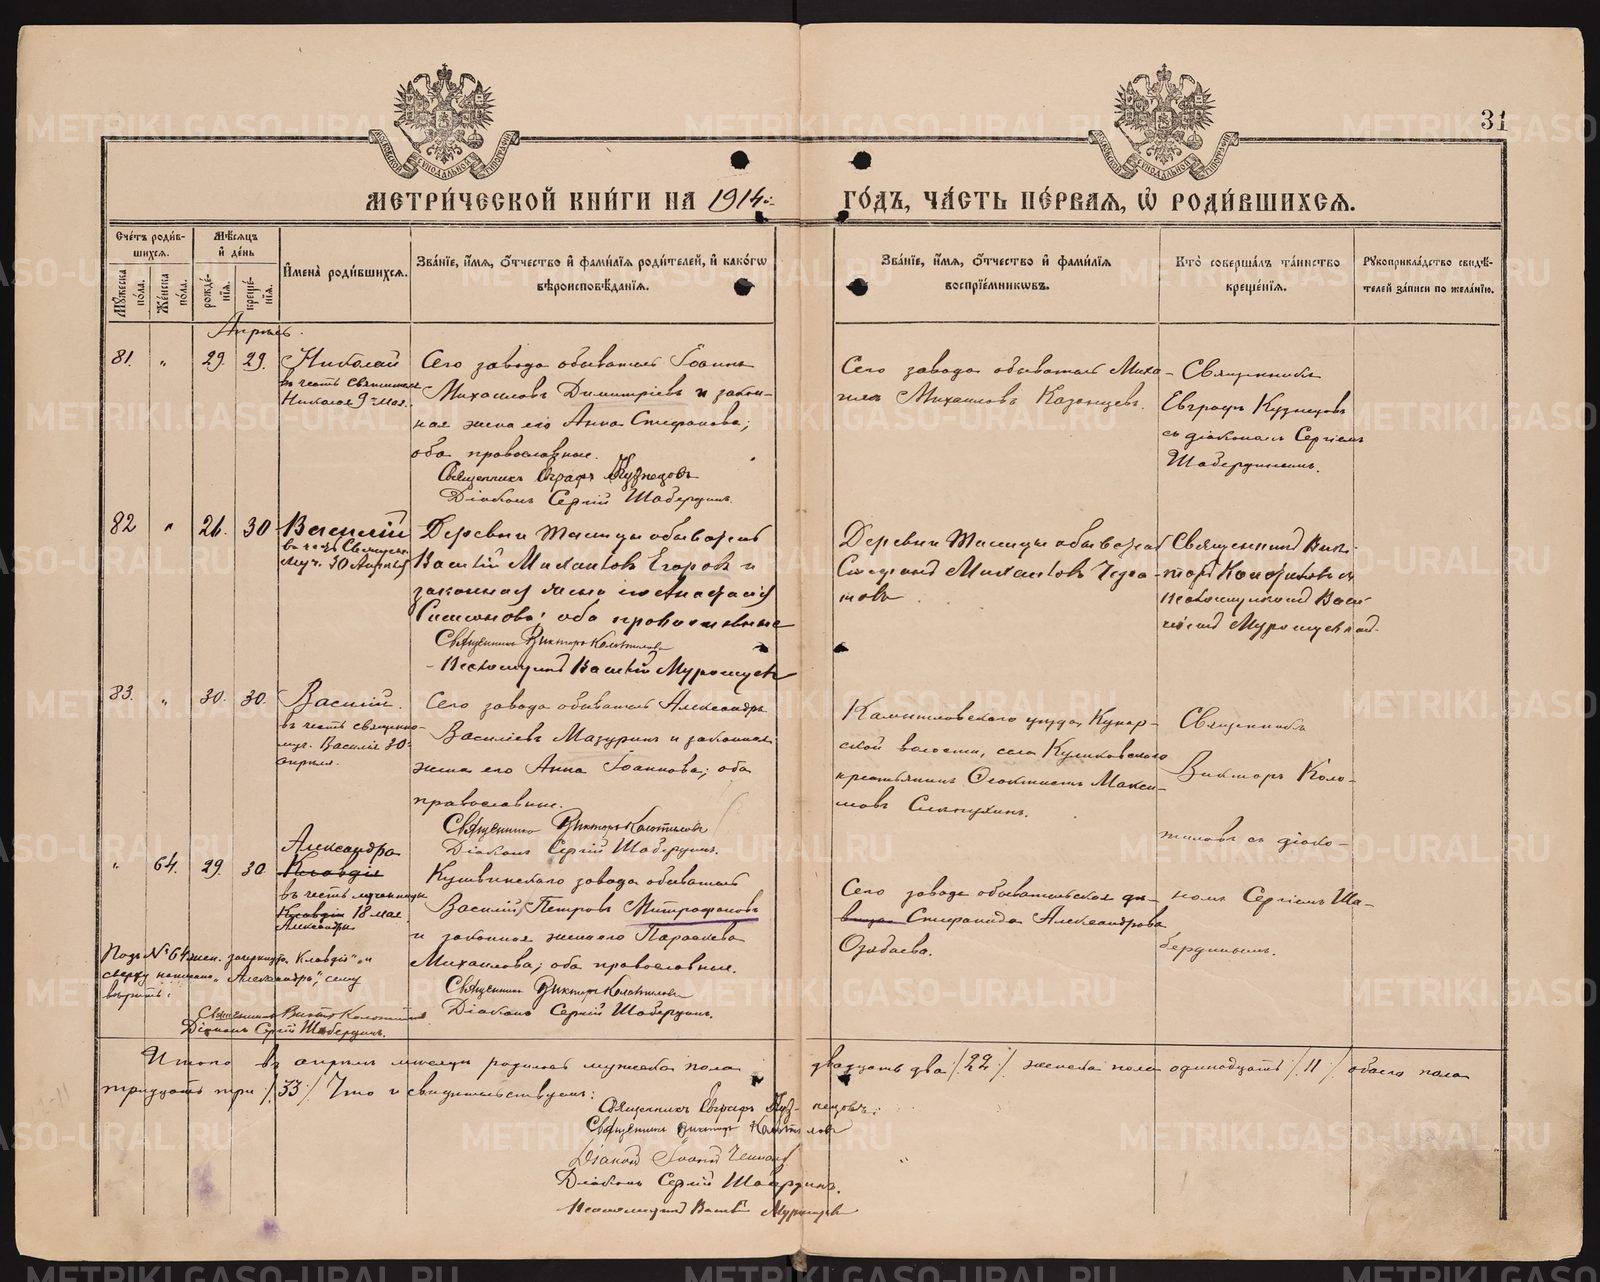 31
МЕТРИ́ЧЕСКОЙ КНИ́ГИ НА 1914й ГО́ДЪ, ЧА́СТЬ ПЕ́РВАЯ, Ѡ РОДИ́ВШИХСЯ.
Сче́тъ роди́в-
шихся.
Мꙋжеска по́ла.
Же́нска по́ла.
Мѣ́сяцъ
и҆ де́нь
рожде́-нїя.
креще́-нїя.
И҆мена̀ роди́вшихся.
Зва́нїе, и҆́мя, о҆́тчество и҆ фами́лїя роди́телей, и҆ како́гѡ
вѣроисповѣ́данїя.
Зва́нїе, и҆́мя, о҆́тчество и҆ фами́лїя
воспрїе́мникѡвъ.
Кто̀ соверша́лъ та́инство
креще́нїя.
Рꙋкоприкла́дство свидѣ́-
телей за́писи по жела́нїю.
Апрѣль.
81. " 29. 29. Николай
въ честь Святителя
Николая 9 мая.
Сего завода обыватель Іоаннъ
Михаиловъ Димитріевъ и закон-
ная жена его Анна Стефанова;
оба православные.
Священникъ Евграфъ Кузнецовъ
Діаконъ Сергій Шабердинъ.
Сего завода обыватель Миха-
илъ Михаиловъ Казанцевъ.
Священникъ
Евграфъ Кузнецовъ
съ діакономъ Сергіемъ
Шабердинымъ.
82 " 26. 30 Василій
въ честь Священно
муч. 30 Апрѣля
Деревни обыватель
Василій Михаиловъ Егоровъ и
законная жена его
оба православные
Священникъ Викторъ Колотиловъ
Псаломщикъ Василій
Деревни обыватель
Михаиловъ
Священникъ Вик-
торъ Колотиловъ съ
Псаломщикомъ Васи-
ліемъ
83. " 30. 30. Василій.
въ честь священно-
муч. Василія 30
апрѣля.
Сего завода обыватель Александръ
Василіевъ Мазуринъ и законная
жена его Анна Іоаннова; оба
православные.
Священникъ Викторъ Колотиловъ
Діаконъ Сергій Шабердинъ.
Камышловскаго уѣзда, Кунар-
ской волости, села Куликовскаго
крестьянинъ Ѳеоктистъ Макси-
мовъ
Священникъ
Викторъ Коло-
тиловъ съ діако-
номъ Сергіемъ Ша-
бердинымъ.
" 64. 29. 30 Александра
Клавдія
въ честь мученицы
Клавдіи 18 мая
Александры
Кушвинскаго завода обыватель
Василій Петровъ Митрофановъ
и законная жена его Параскева
Михаилова; оба православные.
Священникъ Викторъ Колотиловъ
Діаконъ Сергій Шабердинъ.
Сего завода обывательская дѣ-
вица Стефанида Александрова
Подъ № 64 жен. зачеркнуто "Клавдія" и
сверху написано "Александра", сему
вѣрить:
Священникъ Викторъ Колотиловъ
Діаконъ Сергій Шабердинъ.
Итого въ апрѣлѣ мѣсяцѣ родилось мужеска пола двадцать два /22/, женска пола одиннадцать /11/ обоего пола
тридцать три /33/ Что и свидѣтельствуемъ:
Священникъ Евграфъ Кузнецовъ:
Священникъ Викторъ Колотиловъ
Діаконъ Іоаннъ
Діаконъ Сергій Шабердинъ.
Псаломщикъ Василій
METRIKI.GASO-URAL.RU